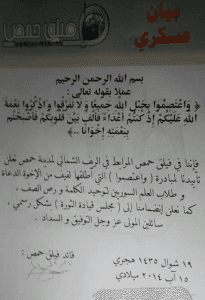 بيان
عسكري
فيلق حمص
بسم الله الرحمن الرحيم
عملا بقوله تعالى :
﴿ وَاعْتَصِمُوا بِحَبْلِ اللَّهِ جَمِيعًا وَلَا تَفَرَّقُوا وَاذْكُرُوا نِعْمَةَ
اللَّهِ عَلَيْكُمْ إِذْ كُنْتُمْ أَعْدَاءً فَأَلَّفَ بَيْنَ قُلُوبِكُمْ فَأَصْبَحْتُمْ
بِنِعْمَتِهِ إِخْوَانًا .. ﴾
فإننا في فيلق حمص المرابط في الريف الشمالي لمدينة حمص نعلن
تأييدنا لمبادرة ( واعتصموا ) التي أطلقها لفيف من الإخوة الدعاة
و طلاب العلم السوريين لتوحيد الكلمة و رص الصف .
كما نعلن إنضمامنا إلى ( مجلس قيادة الثورة ) بشكل رسمي .
سائلين المولى عز وجل التوفيق و السداد .
١٩ شوال ١٤٣٥ هجري
١٥ آب ٢٠١٤ ميلادي
قائد فيلق حمص :